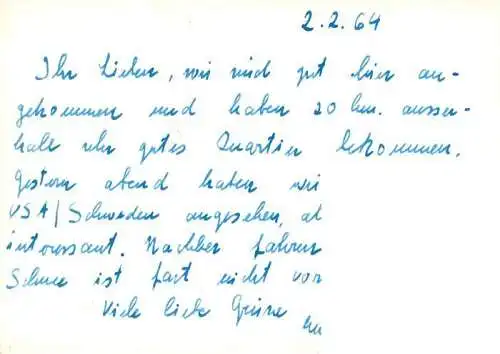 2.2.64
Ihr Lieben, wir sind gut hier an-
gekommen und haben 20 km. ausser-
halb sehr gutes Quartier bekommen.
Gestern abend haben wir
USA/Schweden angesehen,
interessant. Nachher fahren
Schnee ist fast nicht vor
Viele liebe Grüsse